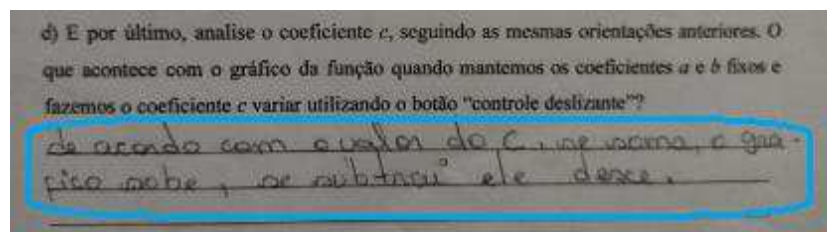 d) E por último, analise o coeficiente c, seguindo as mesmas orientações anteriores. O
que acontece com o gráfico da função quando mantemos os coeficientes a e b fixos e
fazemos o coeficiente c variar utilizando o botão “controle deslizante”?
de acordo com o valor do C, se soma, o grá-
fico sobe, se subtrai ele desce.